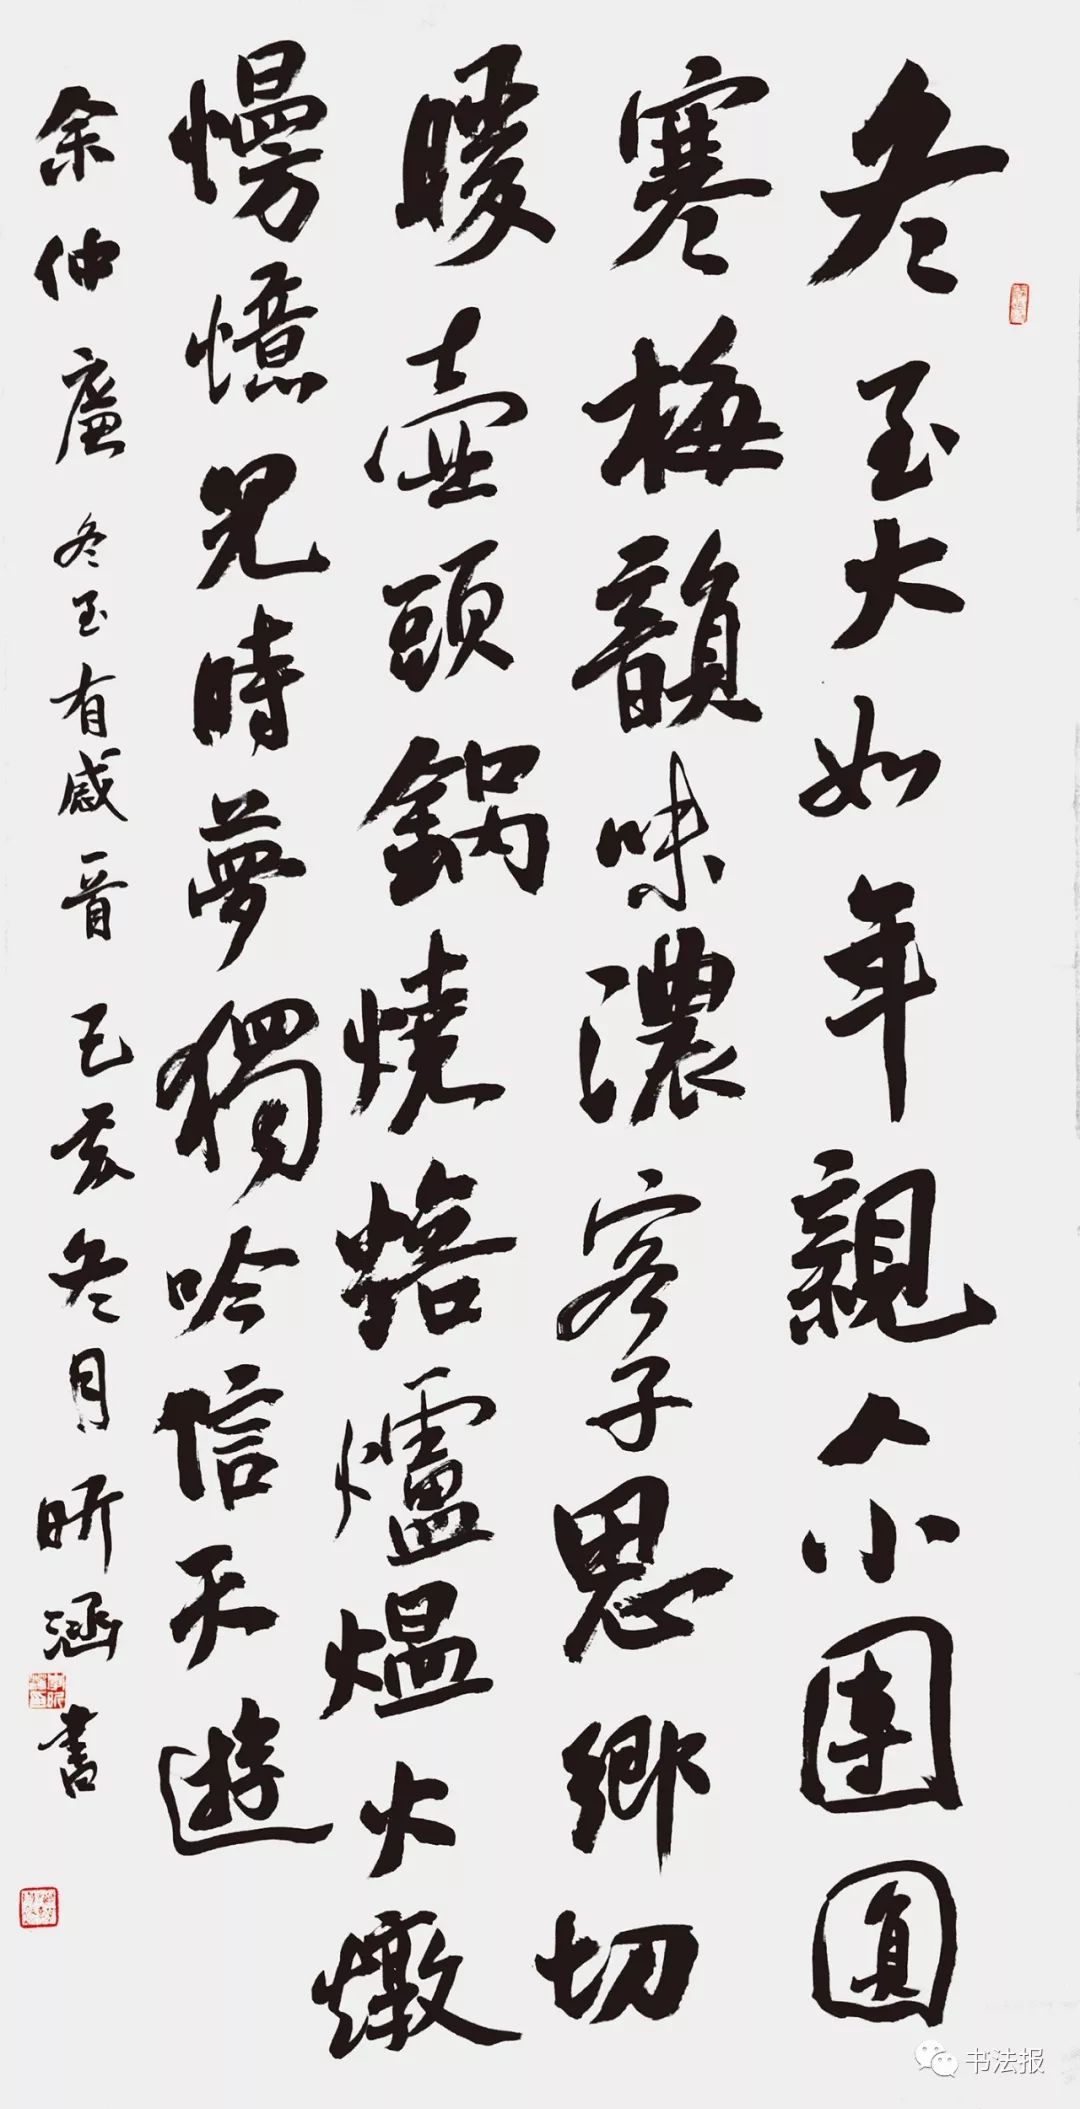 冬至大如年親人小團圓
寒梅韻味濃客子思鄉切
暖壺頭鍋燒焙爐煴火燉
慢憶兒時夢獨吟信天遊
余仲廉冬至有感一首己亥冬月昕涵書
书法报